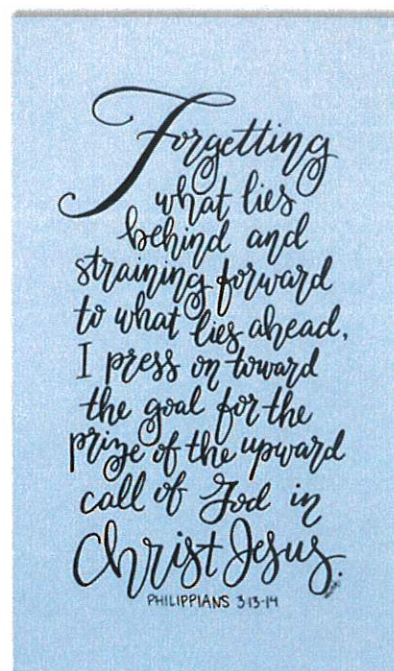 Forgetting
what lies
behind and
straining forward
to what lies ahead,
I press on toward
the goal for the
prize of the upward
call of God in
Christ Jesus.
PHILIPPIANS 3:13-14